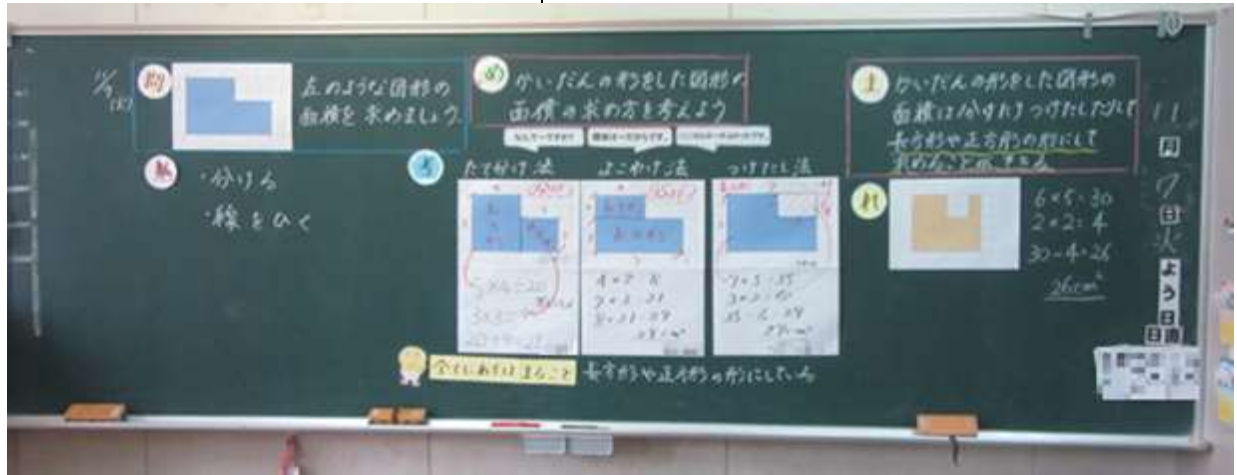 11/7
(火)
問
左のような図形の
面積を求めましょう。
・分ける
・線をひく
め
かいだんの形をした図形の
面積の求め方を考えよう
考
たてわけ法
よこわけ法
つけたし法
5×4=20
3×3=9
20+9=29
4×2=8
7×3=21
8+21=29
29cm²
7×5=35
3×2=6
35-6=29
29cm²
全てにあてはまること
長方形や正方形の形にしている
ま
かいだんの形をした図形の
面積は分けたりつけたしたりして
長方形や正方形の形にして
求めることができる
れ
6×5=30
2×2=4
30-4=26
26cm²
11
月
7
日
火
よう日
日直